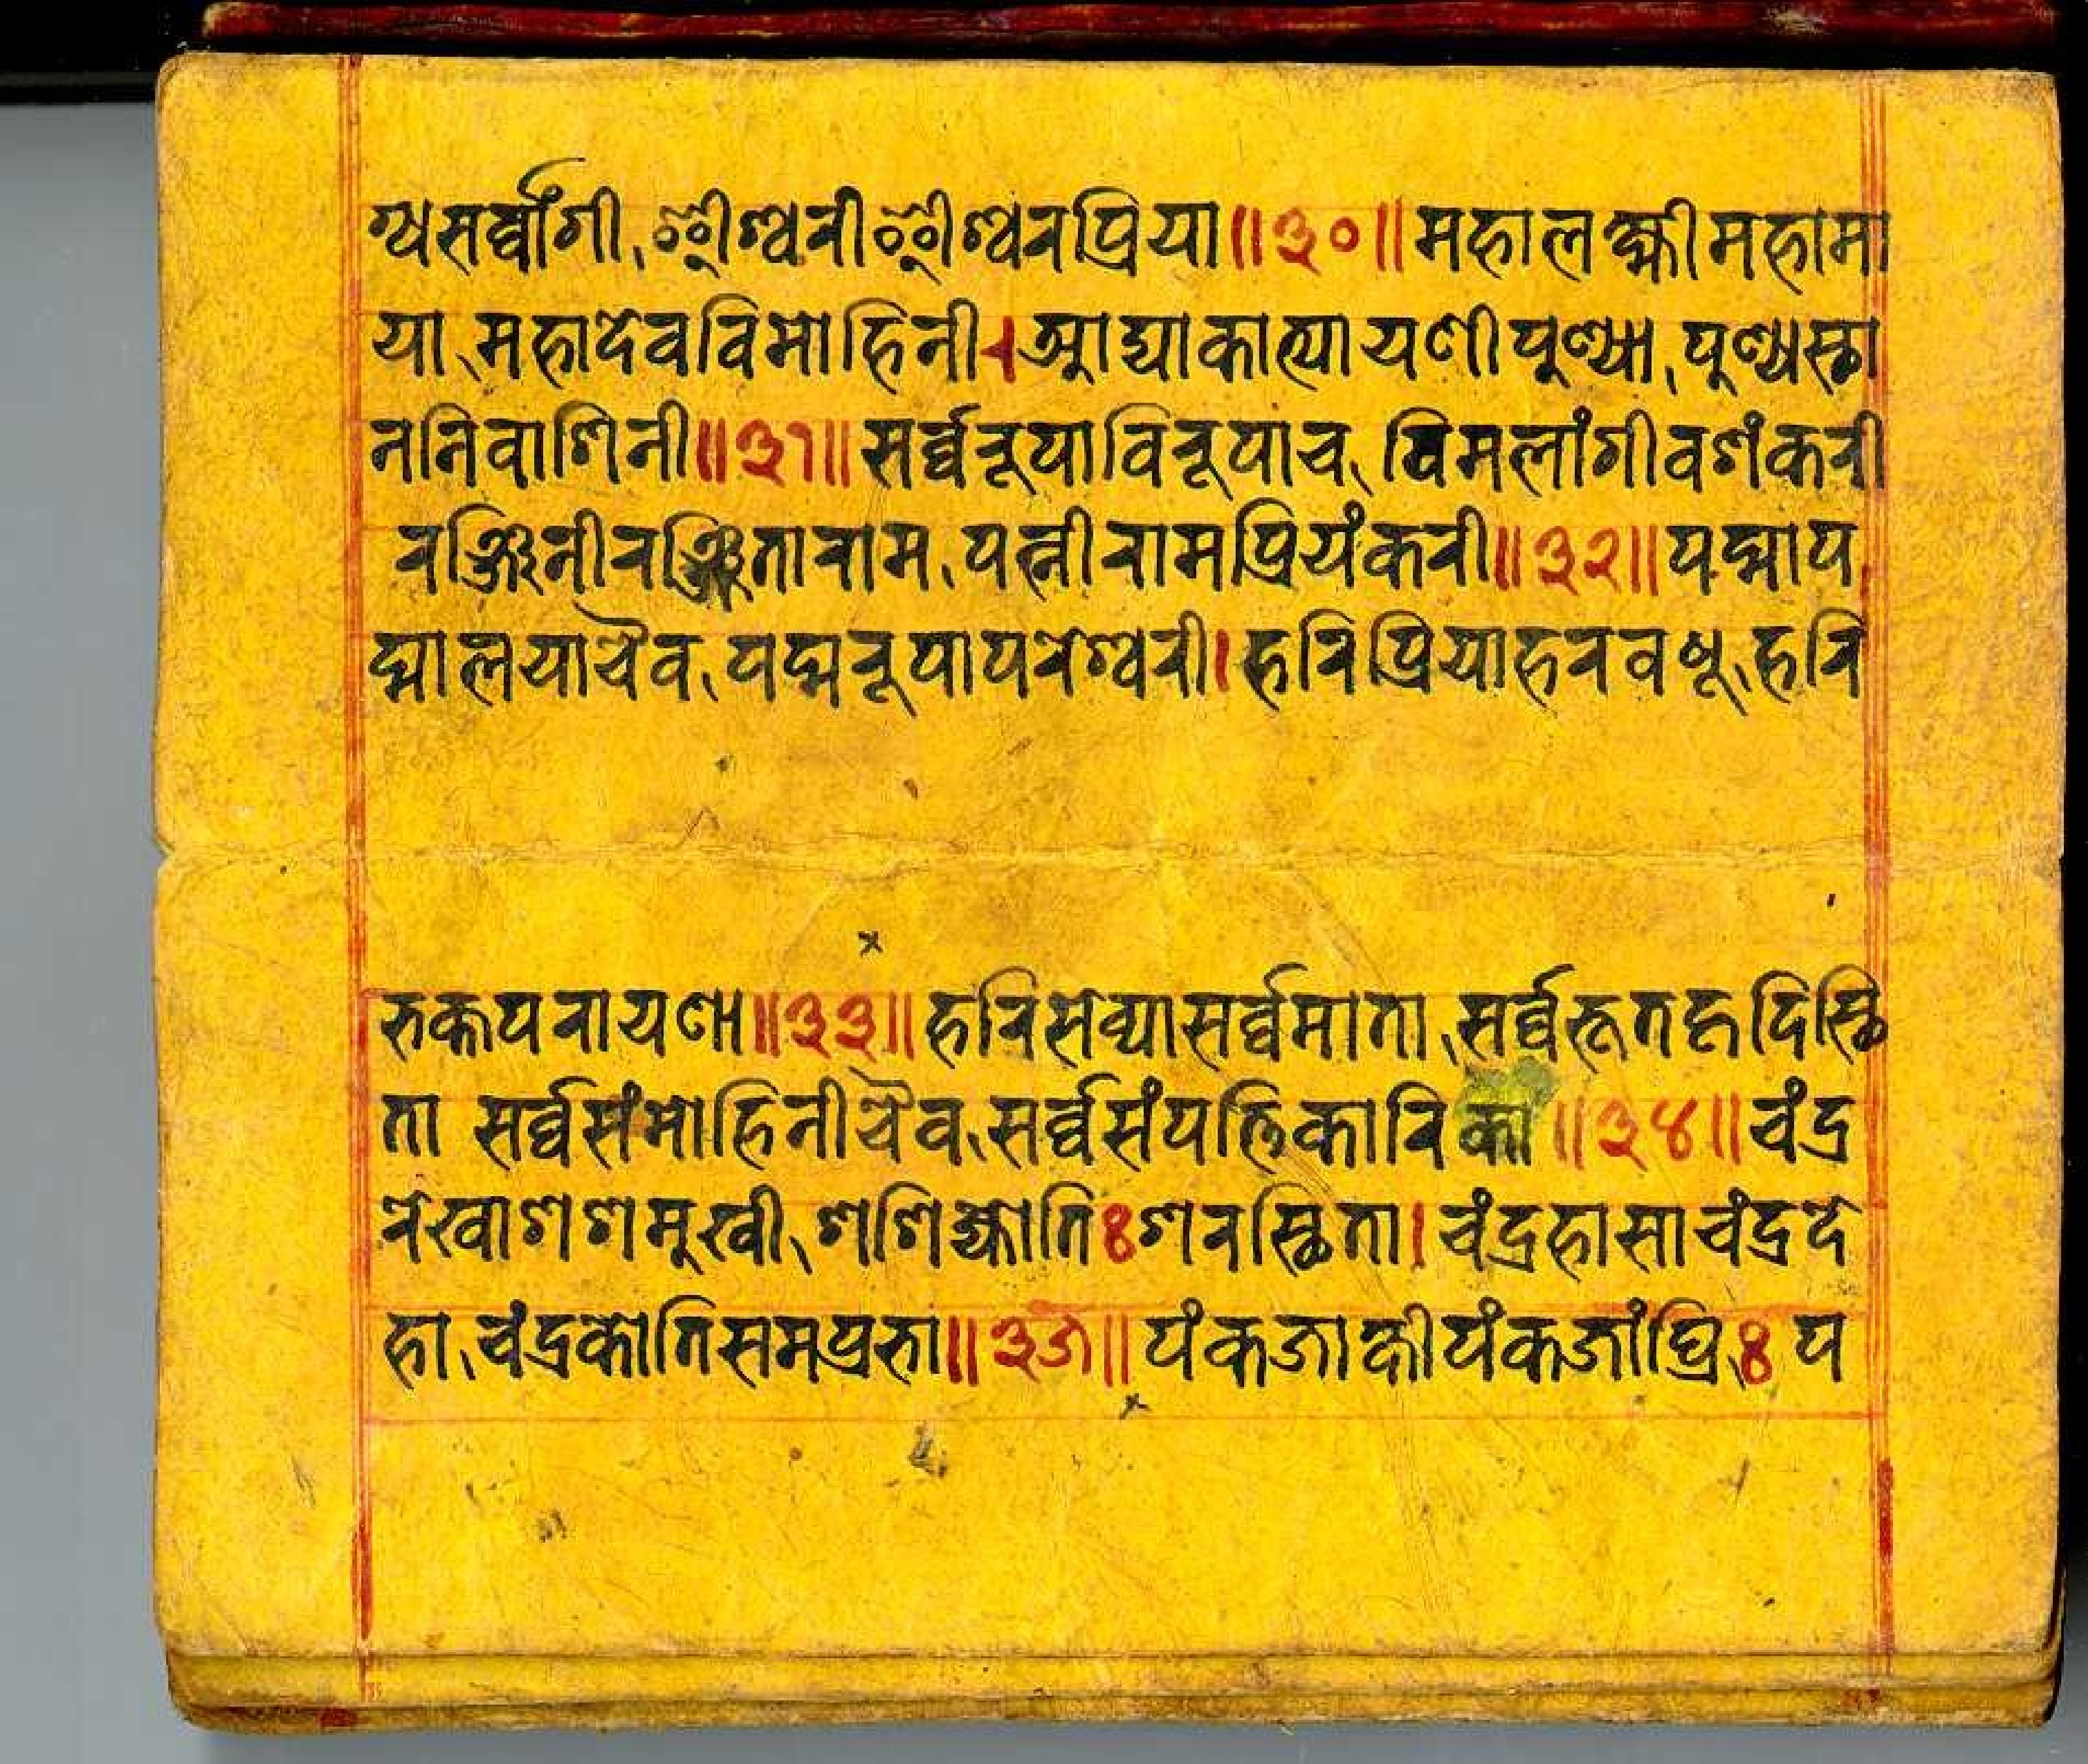 ग्धसर्व्वांगी, ईश्वरीईश्वरप्रिया॥३०॥महालक्ष्मीमहामा
या, महादेवविमोहिनी।आद्याकात्यायणीपूण्या, पूण्यस्था
ननिवाशिनी॥३१॥सर्व्वरूपाविरूपाच, विमलांगीवशंकरी
रञ्जिनीरञ्जिताराम, पत्नीरामप्रियंकरी॥३२॥पद्माप
द्मालयाचैव, पद्मरूपापरेश्वरी।हरिप्रियाहरवधू, हरि
भक्तपरायणा॥३३॥हरिसेव्यासर्व्वमाता, सर्व्वभूतहृदिस्थि
ता सर्व्वसंमोहिनीचैव, सर्व्वसंपत्तिकारिका॥३४॥चंद्र
रेखाशशमुखी, शशिज्योतिःशरस्थिता।चंद्रहासाचंद्रदे
हा, चंद्रकोतिसमप्रभा॥३५॥पंकजाक्षीपंकजांघ्रिः, प